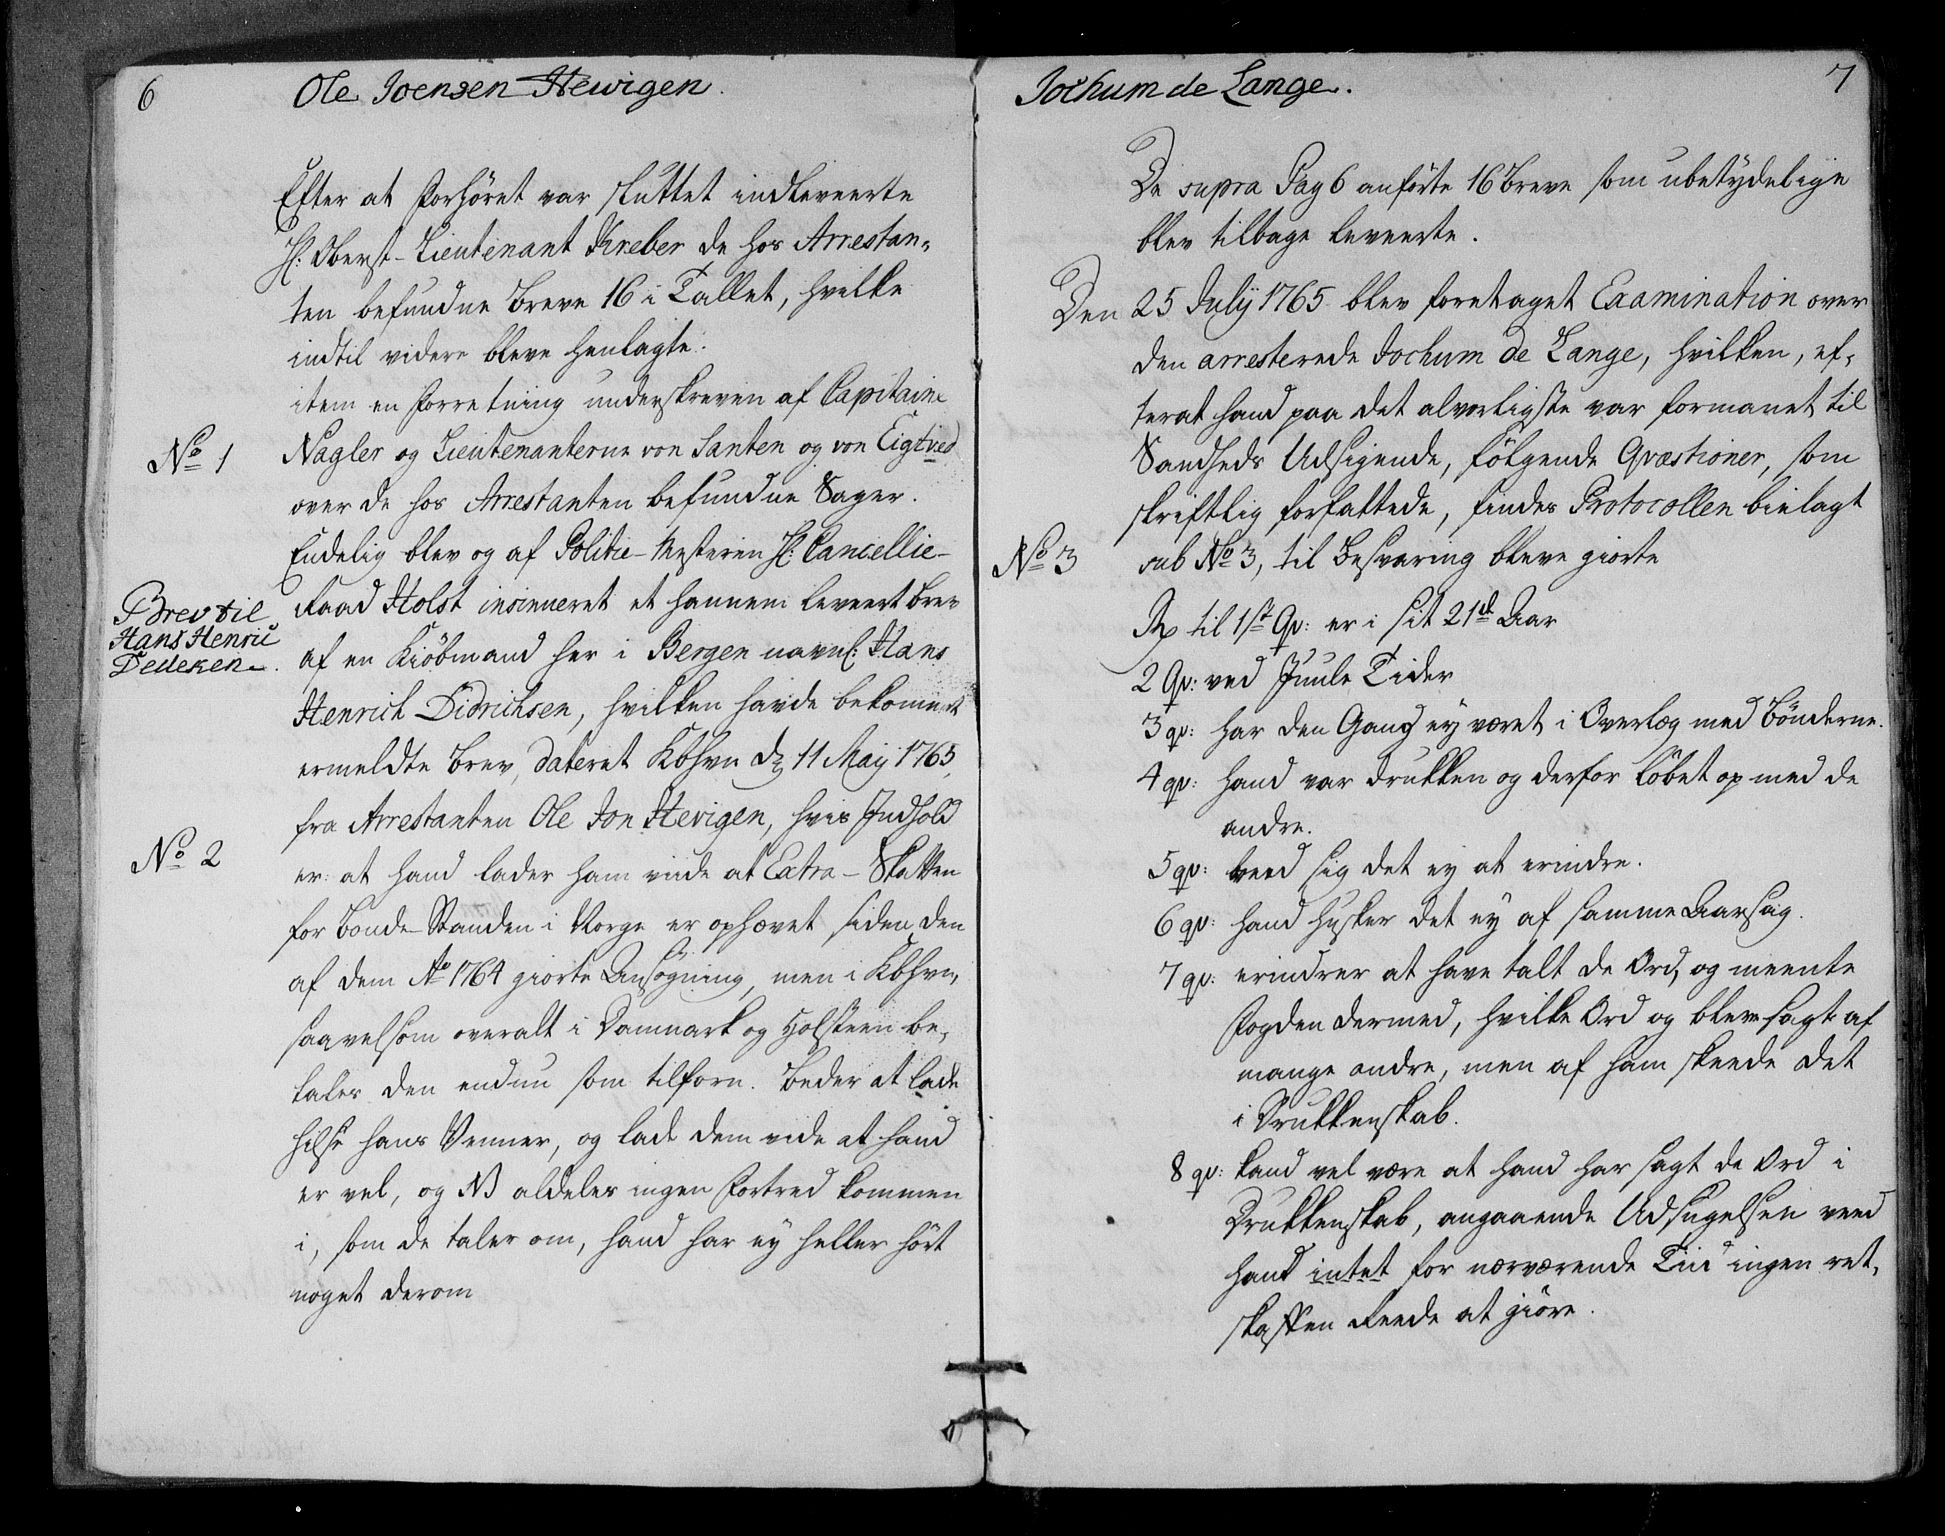 6
Ole Joensen Hewigen.
Efter at Forhöret var sluttet indleverte
H: Oberst-Lieutenant Kreber de hos Arrestan-
ten befundne Breve 16 i Tallet, hvilke
indtil videre bleve henlagte.
item en Forretning underskreven af Capitaine
No 1
Nagler og Lieutenanterne von Santen og von Eigtved
over de hos Arrestanten befundne Sager.
Endelig blev og af Politie-Mesteren H: Cancellie-
Raad Holst insinueret et hannem leveert Brev
Brev til
Hans Henric
Dedeken.
af en Kiöbmand her i Bergen navnl: Hans
Henrich Didrichsen, hvilken havde bekommet
ermeldte Brev, dateret Kbhvn d: 11 Maij 1765,
fra Arrestanten Ole Jon Hevigen, hvis Indhold
No 2
er: at hand lader ham viide at Extra-Skatten
for Bonde-Standen i Norge er ophævet siden den
af dem Ao 1764 giorte Ansögning, men i Kbhvn,
saavelsom overalt i Danmark og Holsteen be-
tales den endnu som tilforn. Beder at lade
hilse hans Venner, og lade dem vide at hand
er vel, og NB aldeles ingen Fortred kommen
i, som de taler om, hand har ey heller hört
noget derom
7
Jochum de Lange.
De supra Pag 6 anförte 16 Breve som ubetydelige
blev tilbage leveerte.
Den 25 Julij 1765 blev foretaget Examination over
den arresterede Jochum de Lange, hvilken, ef-
terat hand paa det alvorligste var formanet til
Sandheds Udsigende, fölgende Qvæstioner, som
skriftlig forfattede, findes Protocollen bielagt
No 3
sub No 3, til Besvaring bleve giorte
Rp til 1ste Qv: er i sit 21de Aar
2 Qv: ved Juule Tider
3 qv: har den Gang ey været i Overlæg med Bönderne.
4 qv: hand var drukken og derfor löbet op med de
andre.
5 qv: veed sig det ey at erindre.
6 qv: hand husker det ey af samme Aarsag.
7 qv: erindrer at have talt de Ord, og meente
Fogden dermed, hvilke Ord og bleve sagt af
mange andre, men af ham skeede det
i Drukkenskab.
8 qv: kand vel være at hand har sagt de Ord i
Drukkenskab, angaaende Udsugelsen veed
hand intet for nærværende Tiid ingen ret-
skaffen Reede at giöre.